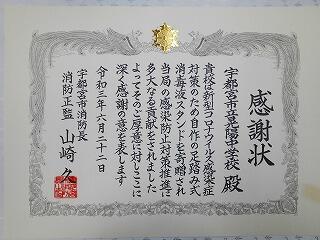 感謝状
宇都宮市立晃陽中学校 殿
貴校は新型コロナウイルス感染症
対策のため自作の足踏み式
消毒液スタンドを寄贈され
当局の感染防止対策推進に
多大なる貢献をされました
よってそのご厚意に対しここに
深く感謝の意を表します
令和三年六月二十二日
宇都宮市消防長
消防正監 山崎 久